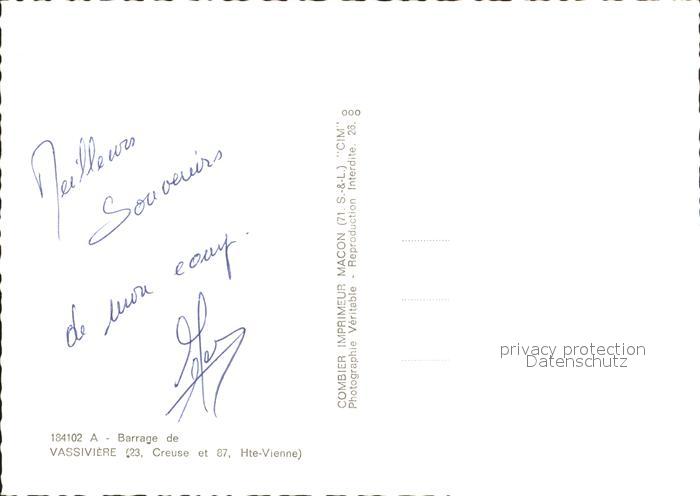 Meilleurs
Souvenirs
de mon
184102 A - Barrage de
VASSIVIÈRE (23, Creuse et 87, Hte-Vienne)
ooo
COMBIER IMPRIMEUR MACON (71. S.-&-L.) "CIM"
Photographie Véritable - Reproduction Interdite. 26.
privacy protection
Datenschutz